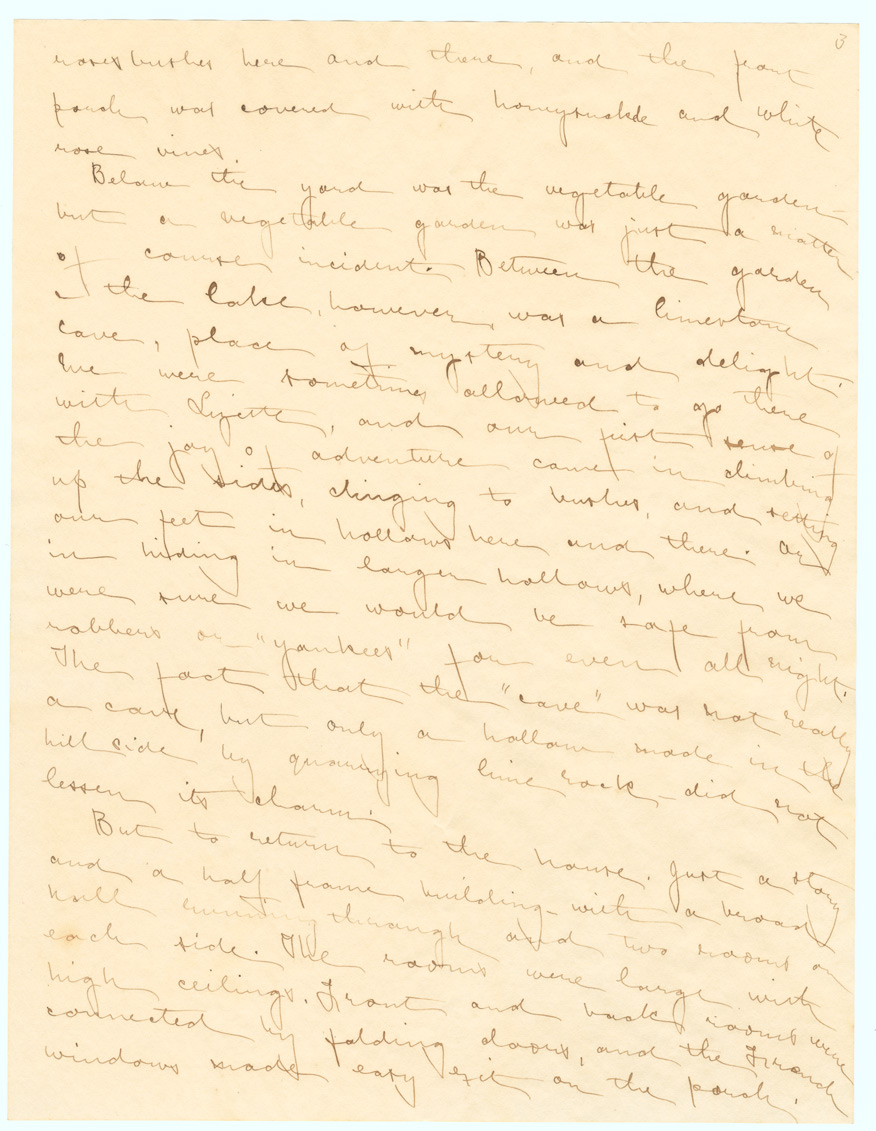 3
roses bushes here and there, and the front
porch was covered with honeysuckle and white
rose vines.
Below the yard was the vegetable garden—
but a vegetable garden was just a matter
of course incident. Between the garden
- the lake, however, was a limestone
cave, place of mystery and delight.
We were sometimes allowed to go there
with Lizette, and our first sense of
the joy of adventure came in climbing
up the sides, clinging to bushes, and setting
our feet in hollows here and there. Or
in hiding in larger hollows, where we
were sure we would be safe from
robbers or "yankees" for even all night.
The fact that the "cave" was not really
a cave, but only a hollow made in the
hill side by quarrying lime rock - did not
lessen its charm.
But to return to the house. Just a story
and a half frame building - with a broad
hall running through and two rooms on
each side. The rooms were large with
high ceilings. Front and back rooms were
connected by folding doors, and the French
windows made easy exit on the porch.